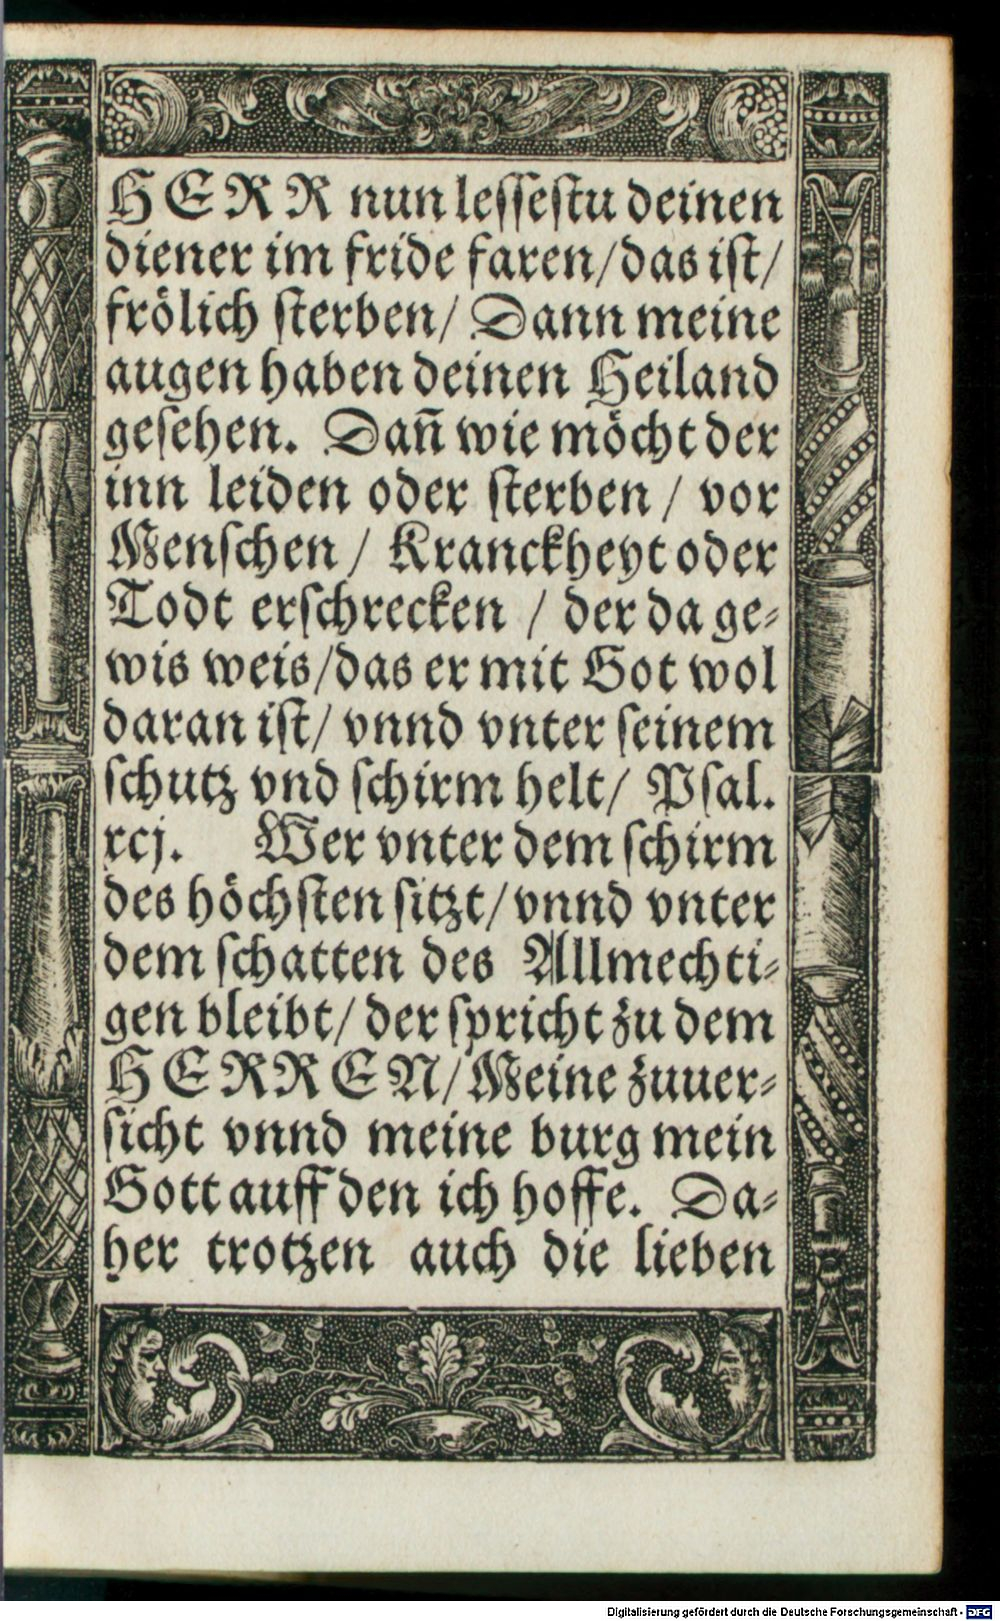 HERR nun lesseſtu deinen
diener im fride faren/das iſt/
frölich ſterben/ Dann meine
augen haben deinen Heiland
geſehen. Dañ wie möcht der
inn leiden oder ſterben / vor
Menſchen / Kranckheyt oder
Todt erſchrecken / der da ge⸗
wis weis/das er mit Got wol
daran iſt/ vnnd vnter ſeinem
ſchutz vnd ſchirm helt/ Pſal.
xcj. Wer vnter dem ſchirm
des höchſten ſitzt/vnnd vnter
dem ſchatten des Allmechti⸗
gen bleibt/ der ſpricht zu dem
HERREN/Meine zuuer⸗
ſicht vnnd meine burg mein
Gott auff den ich hoffe. Da⸗
her trotzen auch die lieben
Digitalisierung gefördert durch die Deutsche Forschungsgemeinschaft - DFG